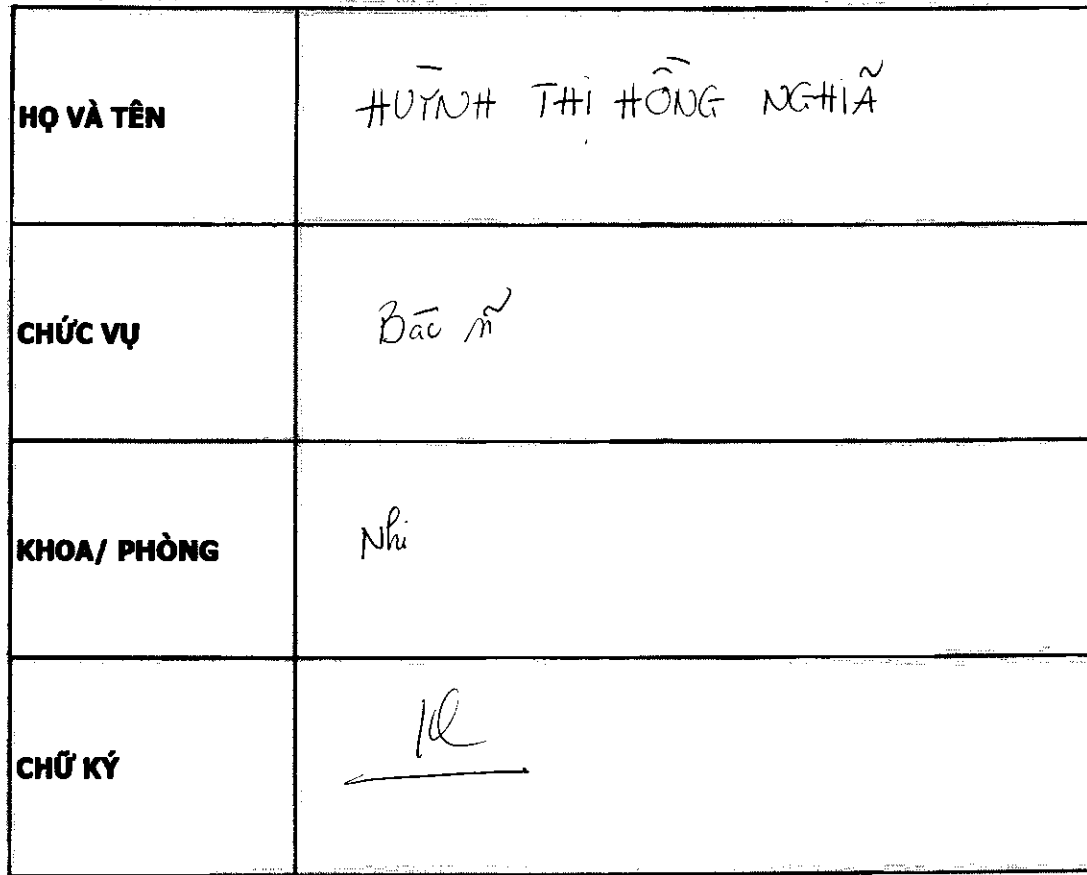 HỌ VÀ TÊN HUỲNH THỊ HỒNG NGHĨA
CHỨC VỤ Bác sĩ
KHOA/ PHÒNG Nhi
CHỮ KÝ